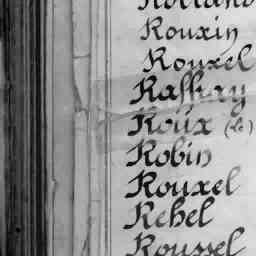 Rolland
Rouxin
Rouxel
Raffray
Roux (le)
Robin
Rouxel
Rehel
Roussel